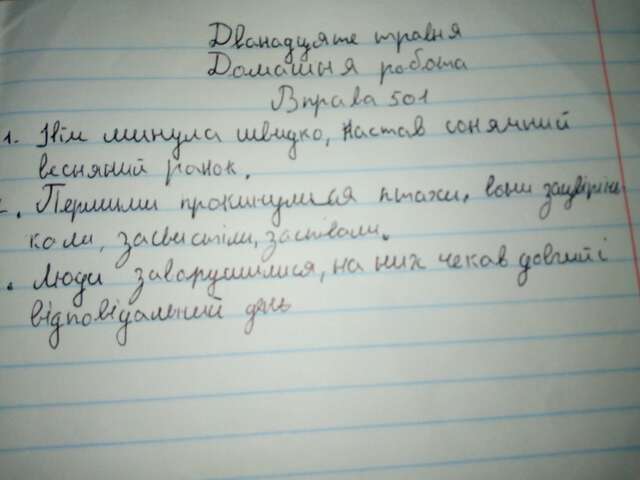 Дванадцяте травня
Домашня робота
Вправа 501
1. Ніч минула швидко, настав сонячний
весняний ранок.
. Першими прокинулися птахи. вони зацвірінь
кали, засвистіли, заспівали.
. Люди заворушилися, на них чекав довгий і
відповідальний день